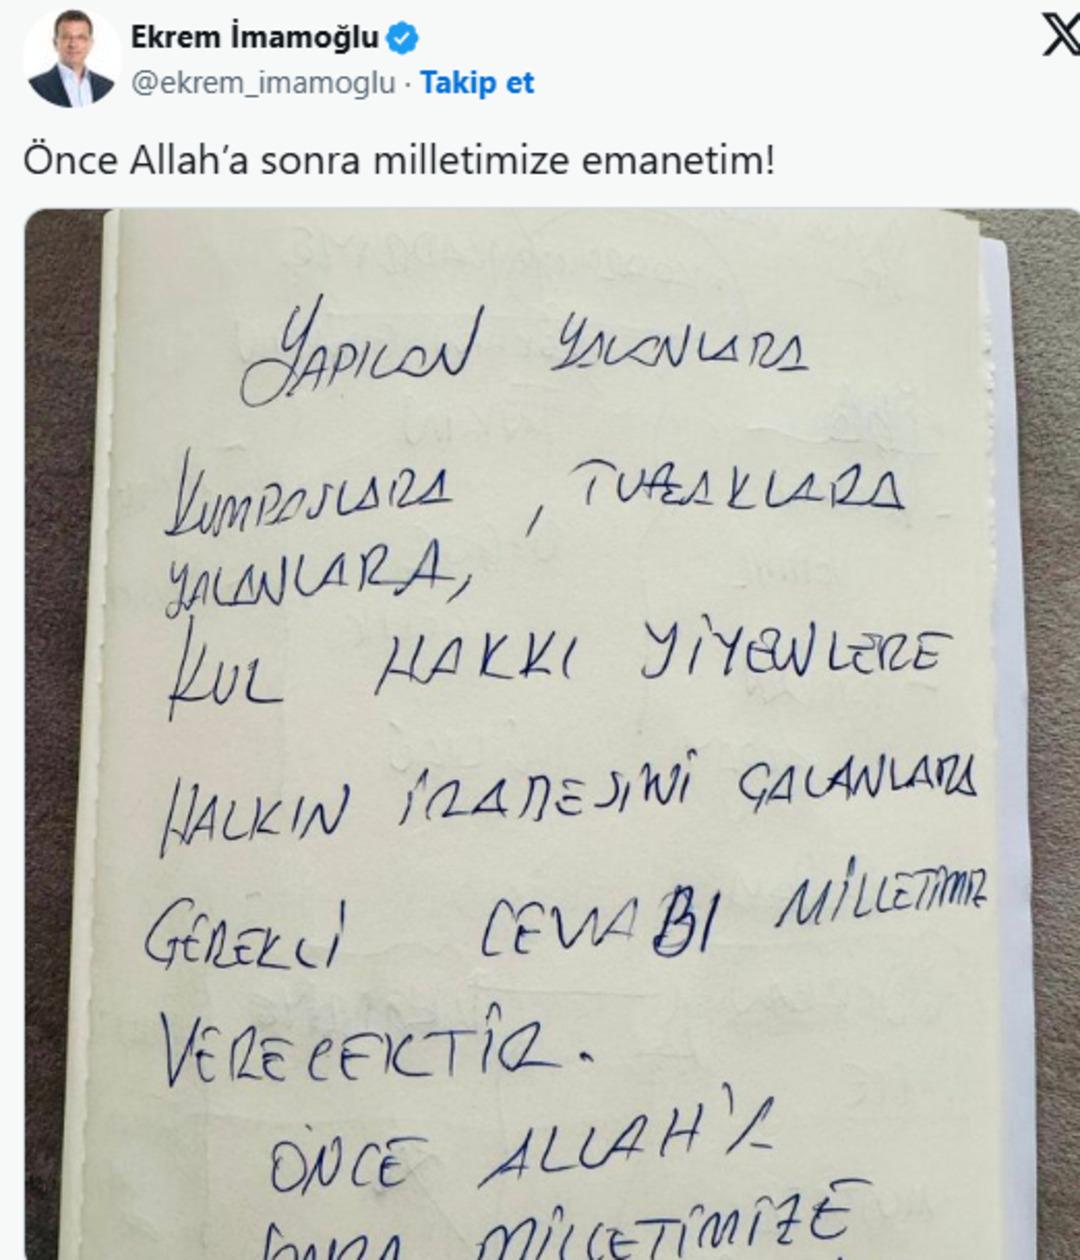 Ekrem İmamoğlu
@ekrem_imamoglu · Takip et
X
Önce Allah'a sonra milletimize emanetim!
YAPILAN YALANLARA
KUMPASLARA , TUZAKLARA
YALANLARA,
KUL HAKKI YİYENLERE
HALKIN İRADESİNİ ÇALANLARA
GEREKLİ CEVABI MİLLETİMİZ
VERECEKTİR.
ÖNCE ALLAH'A
SONRA MİLLETİMİZE